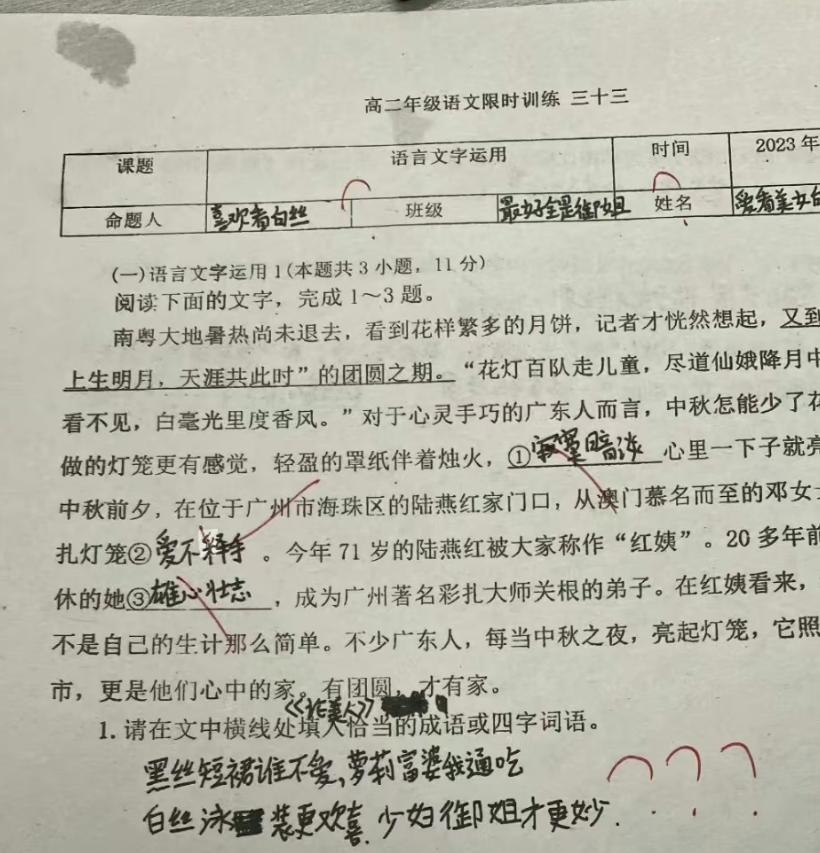 高二年级语文限时训练 三十三
课题 语言文字运用 时间 2023 年
命题人 喜欢看白丝 班级 最好全是御姐 姓名 爱看美女白
(一)语言文字运用 1(本题共 3 小题，11 分)
阅读下面的文字，完成 1～3 题。
南粤大地暑热尚未退去，看到花样繁多的月饼，记者才恍然想起，又到
上生明月，天涯共此时”的团圆之期。“花灯百队走儿童，尽道仙娥降月中
看不见，白毫光里度香风。”对于心灵手巧的广东人而言，中秋怎能少了花
做的灯笼更有感觉，轻盈的罩纸伴着烛火，①寂寞暗淡 心里一下子就亮
中秋前夕，在位于广州市海珠区的陆燕红家门口，从澳门慕名而至的邓女士
扎灯笼②爱不释手 。今年 71 岁的陆燕红被大家称作“红姨”。20 多年前
休的她③雄心壮志 ，成为广州著名彩扎大师关根的弟子。在红姨看来，
不是自己的生计那么简单。不少广东人，每当中秋之夜，亮起灯笼，它照
市，更是他们心中的家。有团圆，才有家。
1. 请在文中横线处填入恰当的成语或四字词语。
黑丝短裙谁不爱，萝莉富婆我通吃
白丝泳装更欢喜，少妇御姐才更妙.
？？？